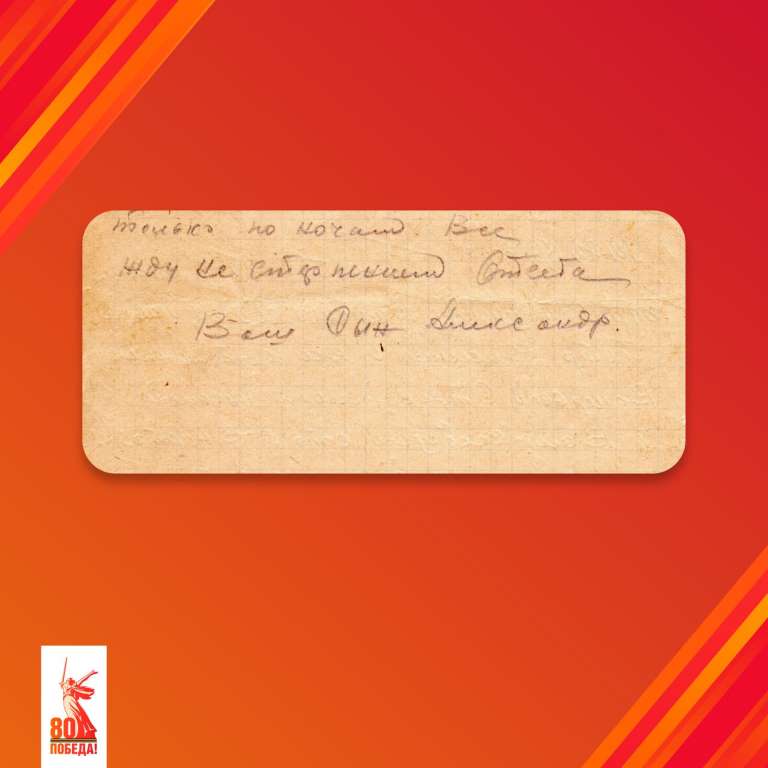 только по ночам. Все
жду не стерпением Ответа
Ваш Сын Александр.
80
ПОБЕДА!